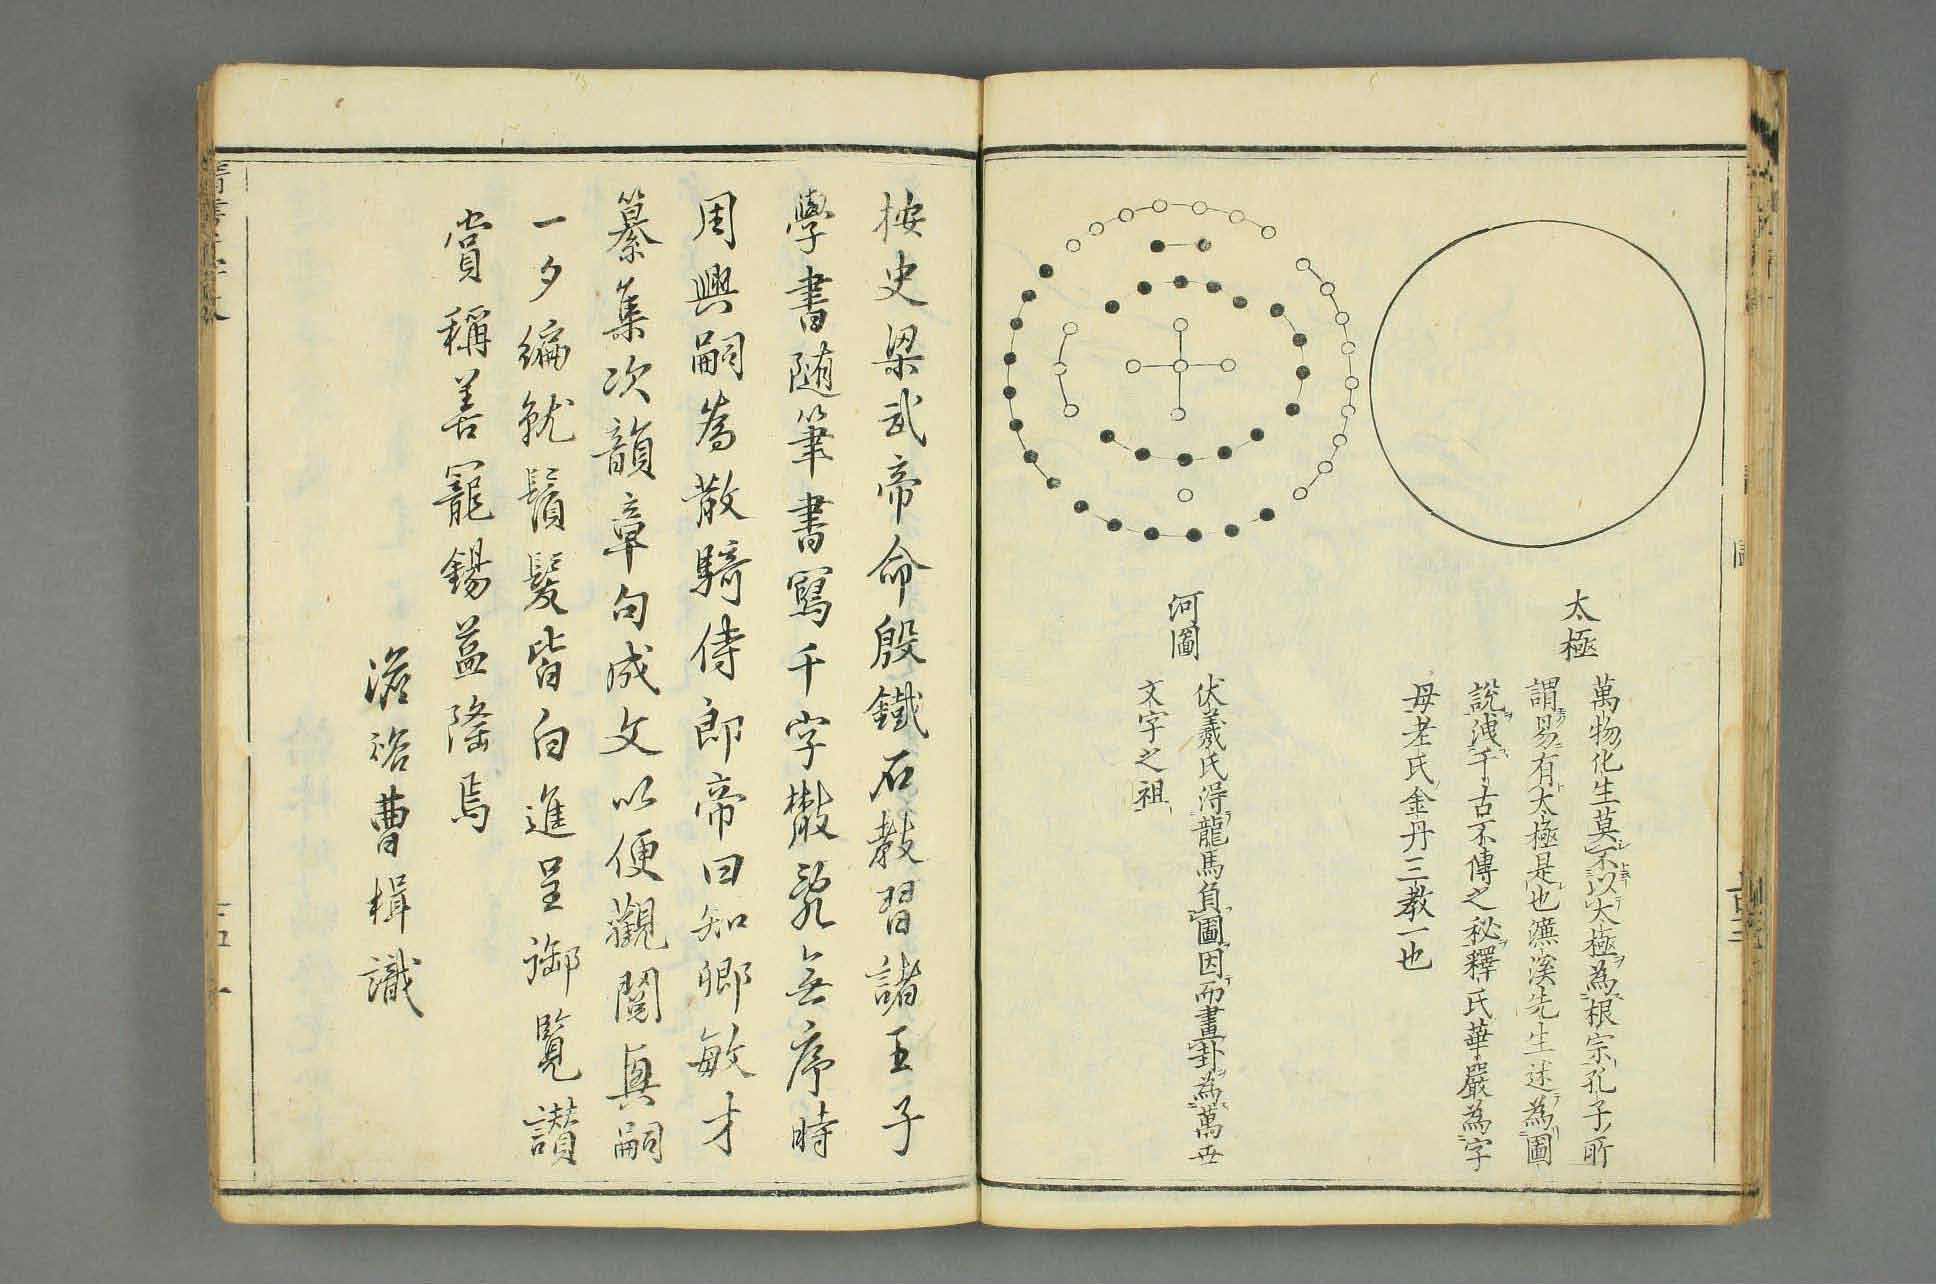 太極
萬物化生莫不以太極為根宗孔子所
謂易有太極是也濂溪先生述為圖
說洩千古不傳之秘釋氏華嚴為字
母老氏金丹三教一也
河圖
伏羲氏得龍馬負圖因而畫卦為萬世
文字之祖
按史梁武帝命殷鐵石教習諸王子
學書随筆書寫千字散亂無序時
周興嗣為散騎侍郎帝曰知卿敏才
纂集次韻章句成文以便觀閱真嗣
一夕編就鬚髮皆白進呈御覽讃
賞稱善寵錫益隆焉
曹楫識